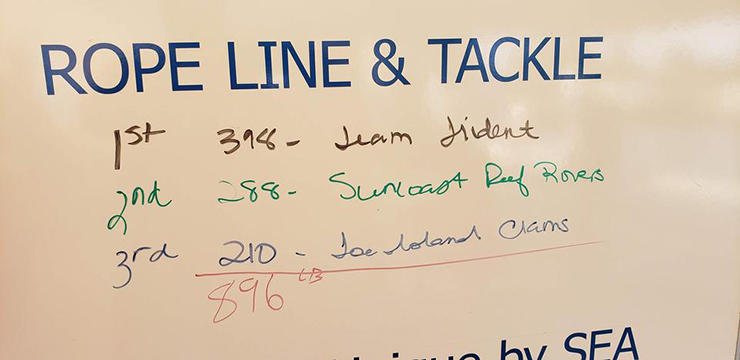 ROPE LINE & TACKLE
1st 398- Team Trident
2nd 288- Suncoast Reef Rovers
3rd 210 - Joe Island Clams
896 LB
by SEA